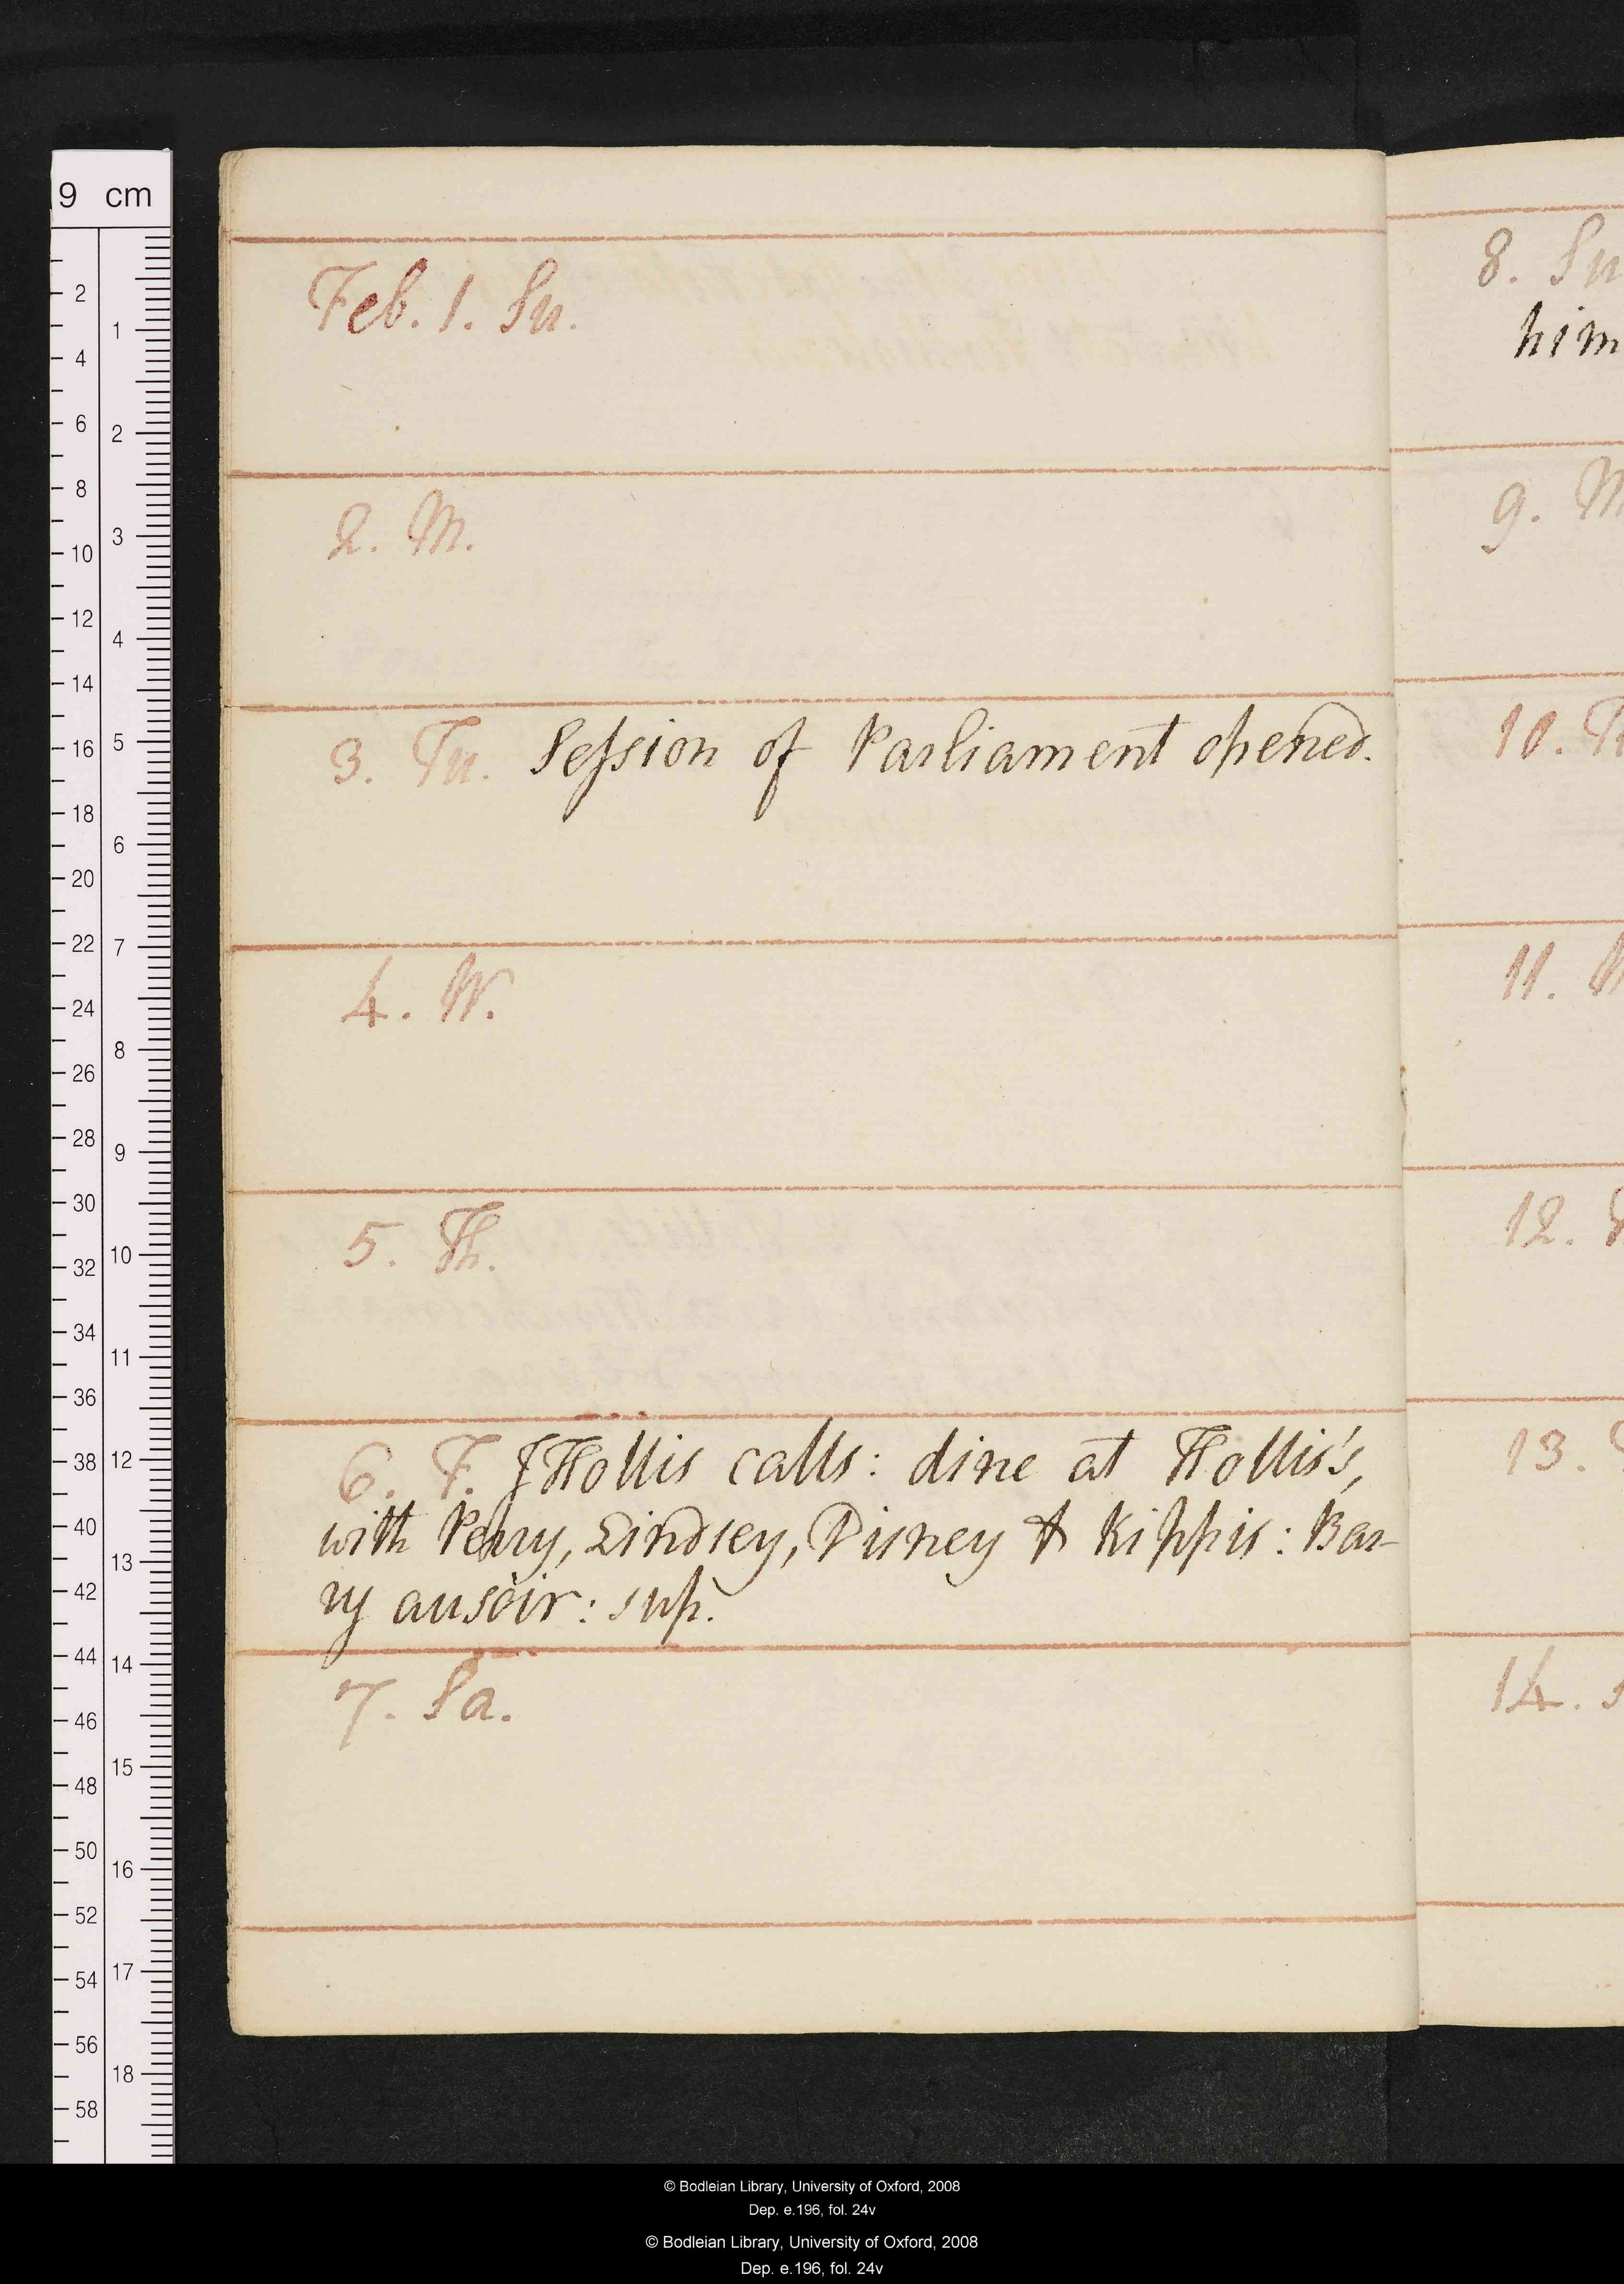 9 cm
Feb. 1. Su.
2. M.
3. Tu. Seſsion of Parliament opened.
4. W.
5. Th.
6. F. J Hollis calls: dine at Hollis's,
with Perry, Lindsey, Disney & Kippis: Bar-
ry au soir: sup.
7. Sa.
8. Su
him
9. M
10. T
11. W
12.
13.
14. S
2
4
6
8
10
12
14
16
18
20
22
24
26
28
30
32
34
36
38
40
42
44
46
48
50
52
54
56
58
1
2
3
4
5
6
7
8
9
10
11
12
13
14
15
16
17
18
© Bodleian Library, University of Oxford, 2008
Dep. e.196, fol. 24v
© Bodleian Library, University of Oxford, 2008
Dep. e.196, fol. 24v